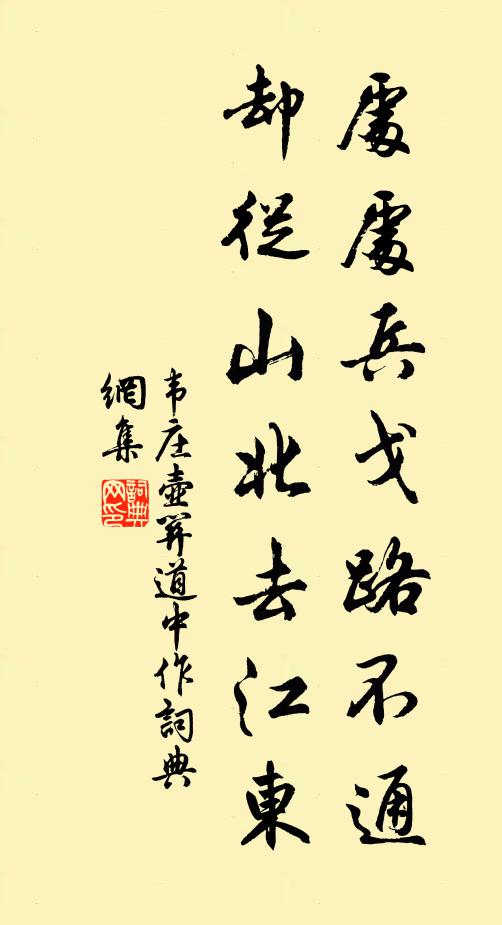 處處兵戈路不通
却從山北去江東
韦庄壺關道中作詞典
網集
詞典
网印